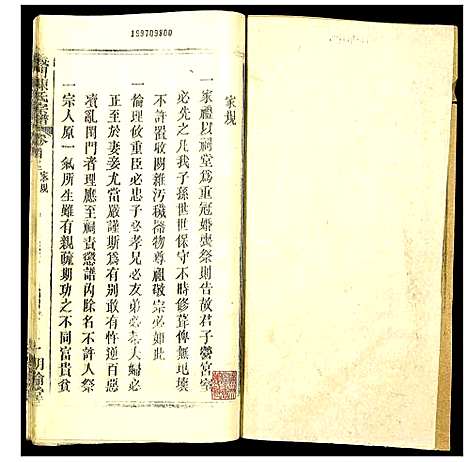 199709800
家規
一家禮以祠堂爲重冠婚喪祭則告故君子營宮室
必先之凡我子孫世世保守不時修葺俾無圯壞
不許置收閑雜汚穢器物尊祖敬宗必如此
一倫理攸重臣必忠子必孝兄必友弟必恭夫婦必
正至於妻妾尤當嚴謹斯爲有別敢有忤逆百惡
瀆亂閨門者理應至祠責懲譜內除名不許人祭
一宗人原一氣所生雖有親疏期功之不同富貴貧
陳氏宗譜
家規
明倫堂